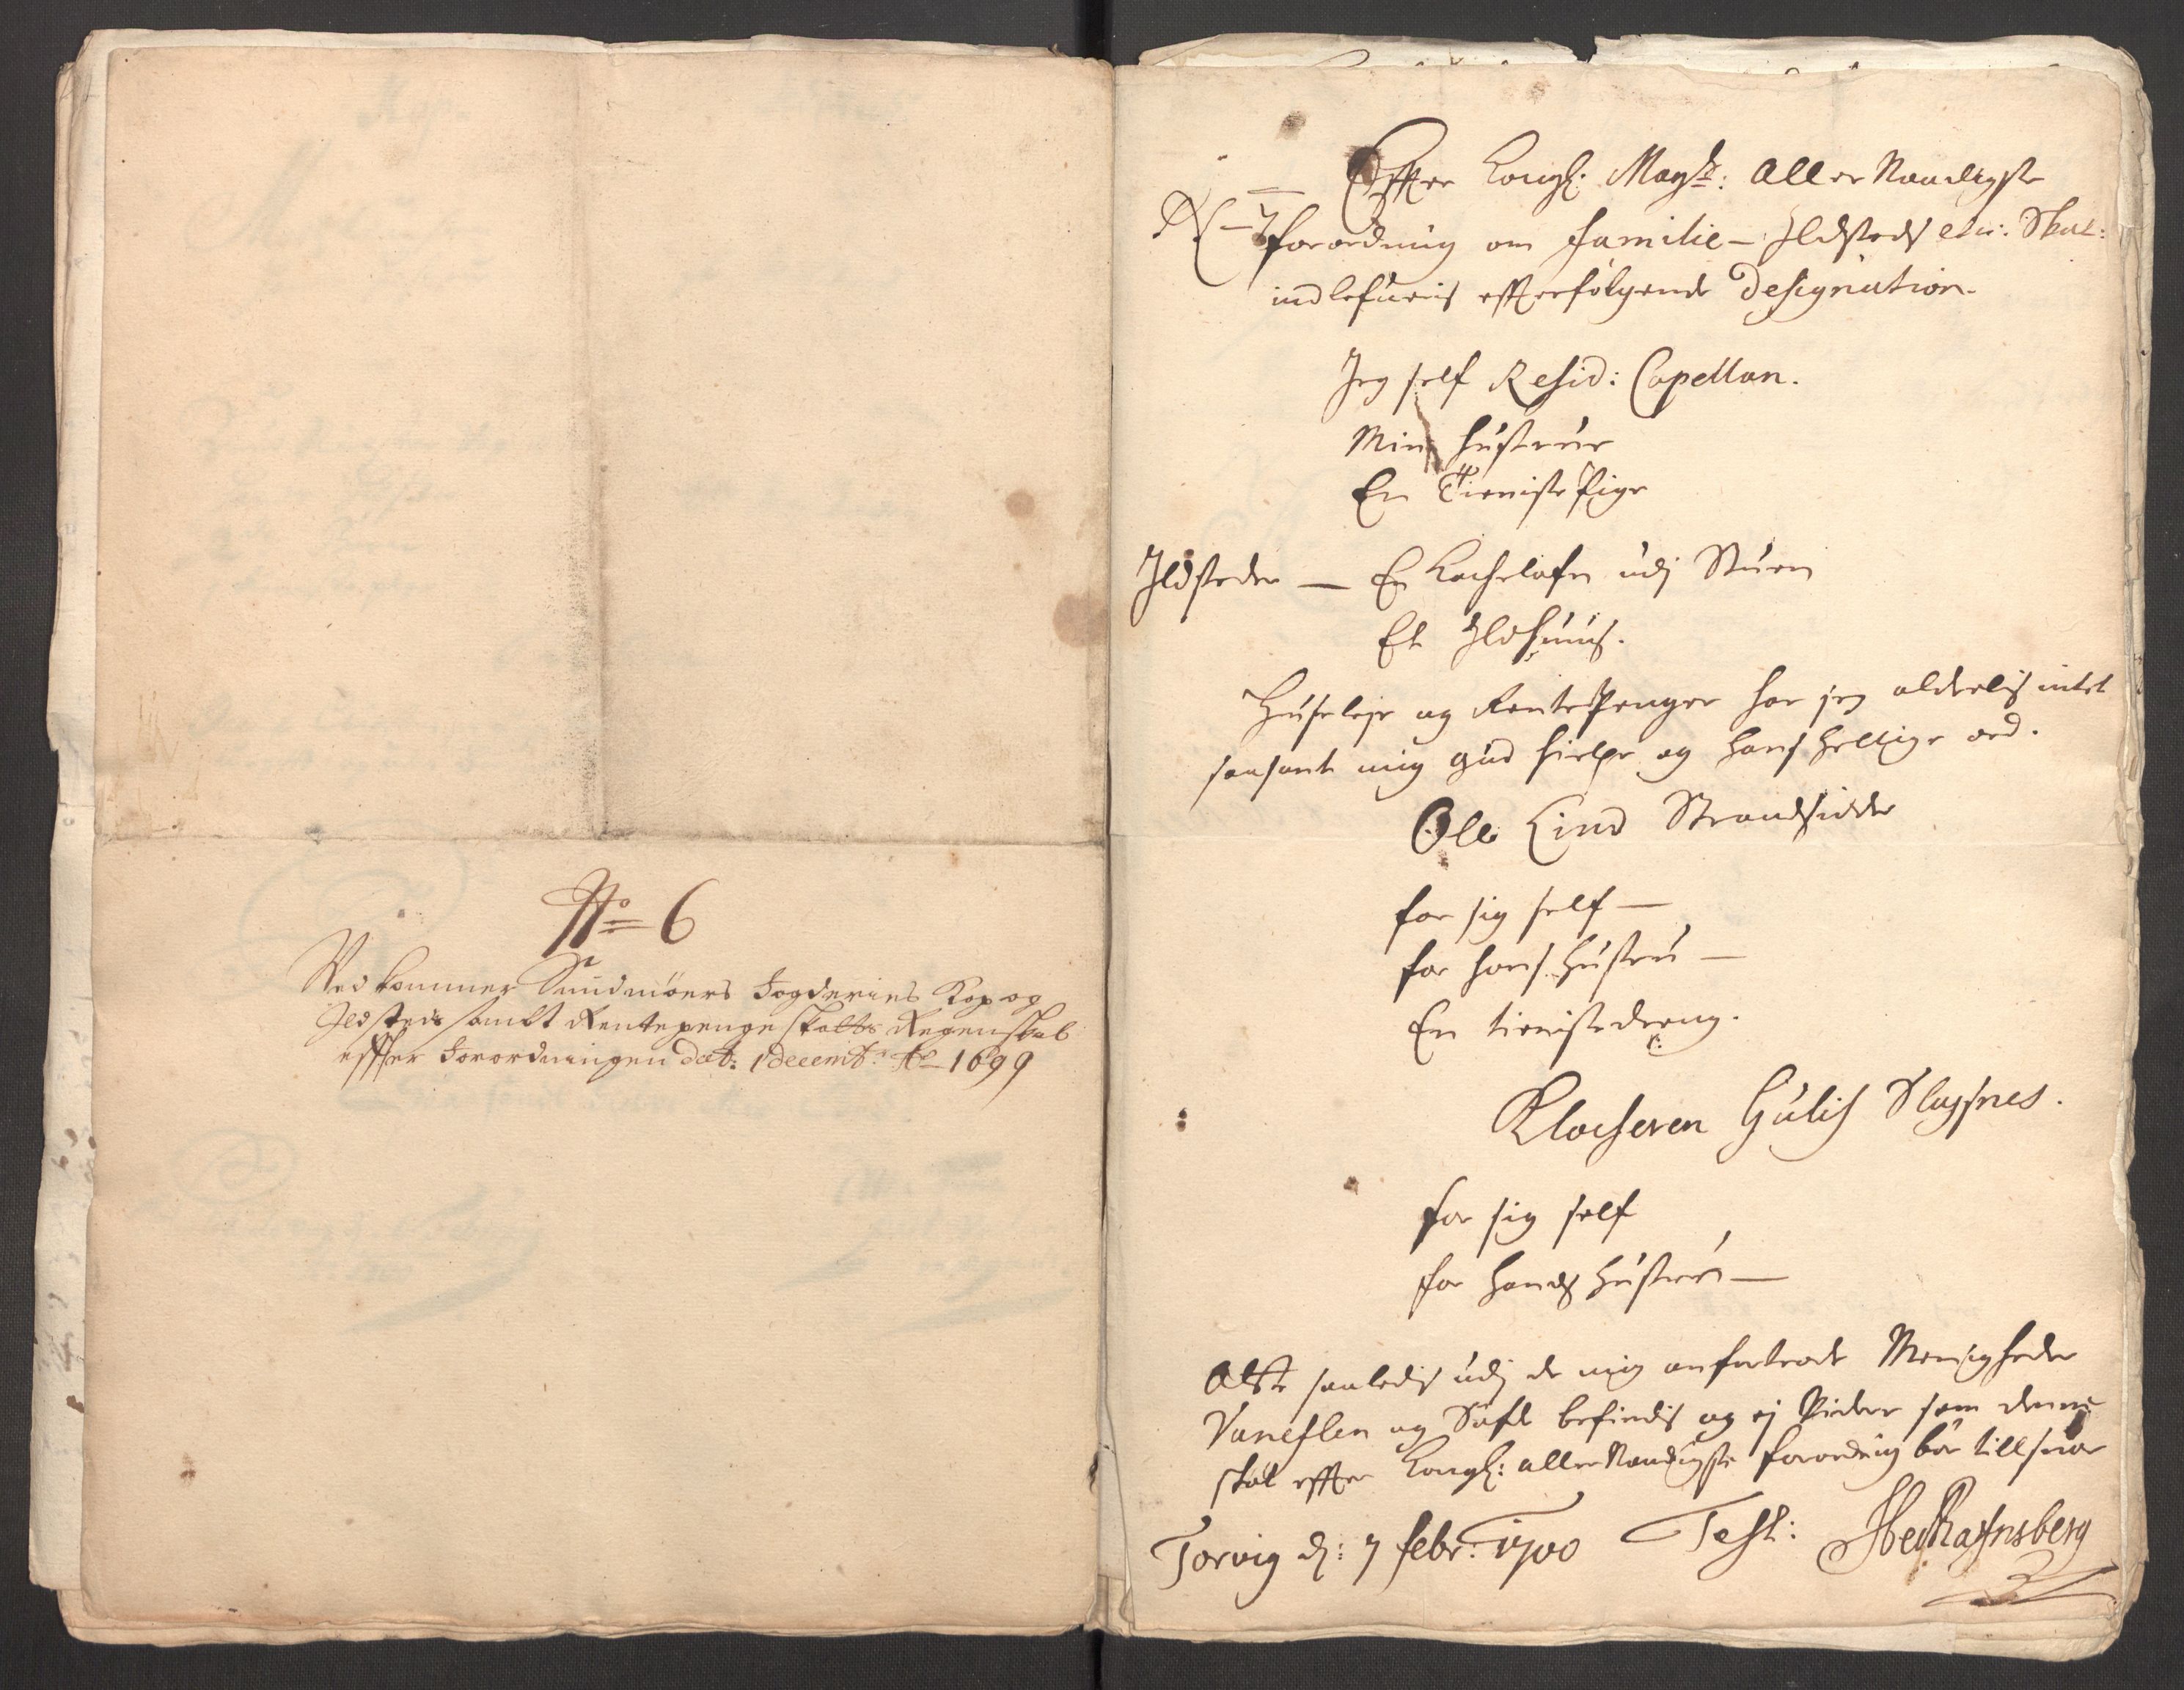 No 6
Ved kommer Sundmöers Fogderies Kop og
Ildsteds sambt Rentepenge skatts Regenskab
effter Forordningen dat: 1 decemb: Ao 1699
Effter Kongl: Mayts: Aller Naadigste
No 7 forordning om familie - Ildsteds etc: Skat:
indlefueris effterfølgende Designation.
Jeg self Resid: Capellan.
Min hustrue
En Tieniste Pige
Ildsteder — En Kachelofn udj Stuen
Et Ildhuus.
Huuseleje og Rente Penger har jeg alderlis intet
saasant mig gud hielpe og hans hellige ord.
Ole Lind Strandsidder
for sig self —
for hans Hustru —
En tieniste dreng.
Klocheren Gulich Slagsnes.
for sig self
for hands Hustru —
Alt saaledis udj de mig anfertrode Menigheder
Vanelfen og Søfde befindis og ej Videre som denne
skat effter Kongl: aller Naadigste forordnig bør tillsuar
Torvig d: 7 febr: 1700 Test: Ravnsberg